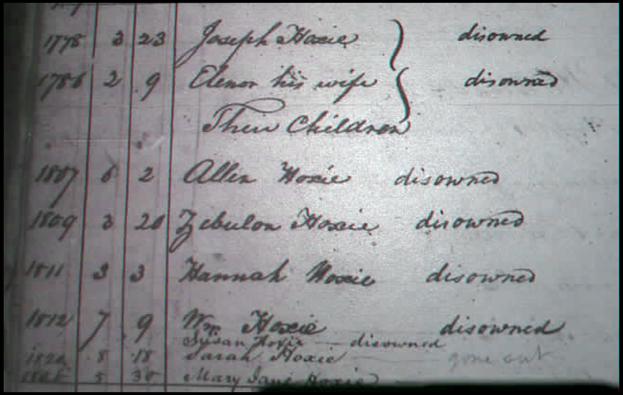 1778 3 23 Joseph Hoxie } disowned
1786 2 9 Elenor his wife } disowned
Their Children
1807 6 2 Allen Hoxie disowned
1809 3 20 Zebulon Hoxie disowned
1811 3 3 Hannah Hoxie disowned
1812 7 9 Wm. Hoxie disowned
Susan Hoxie — disowned
1820 8 18 Sarah Hoxie — gone out
5 30 Mary Jane Hoxie